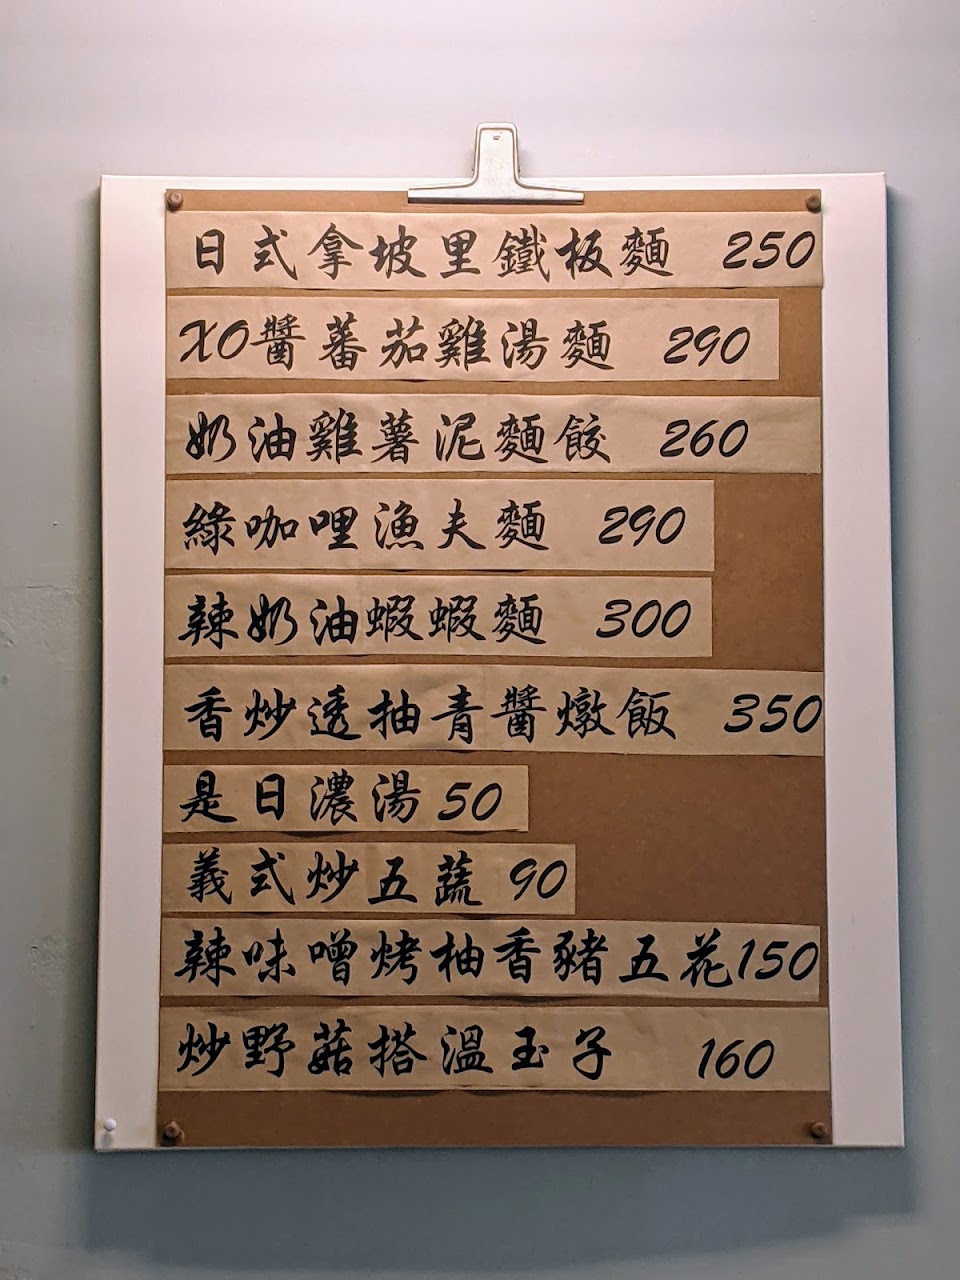 日式拿坡里鐵板麵 250
XO醬蕃茄雞湯麵 290
奶油雞薯泥麵餃 260
綠咖哩漁夫麵 290
辣奶油蝦蝦麵 300
香炒透抽青醬燉飯 350
是日濃湯 50
義式炒五蔬 90
辣味噌烤柚香豬五花 150
炒野菇搭溫玉子 160